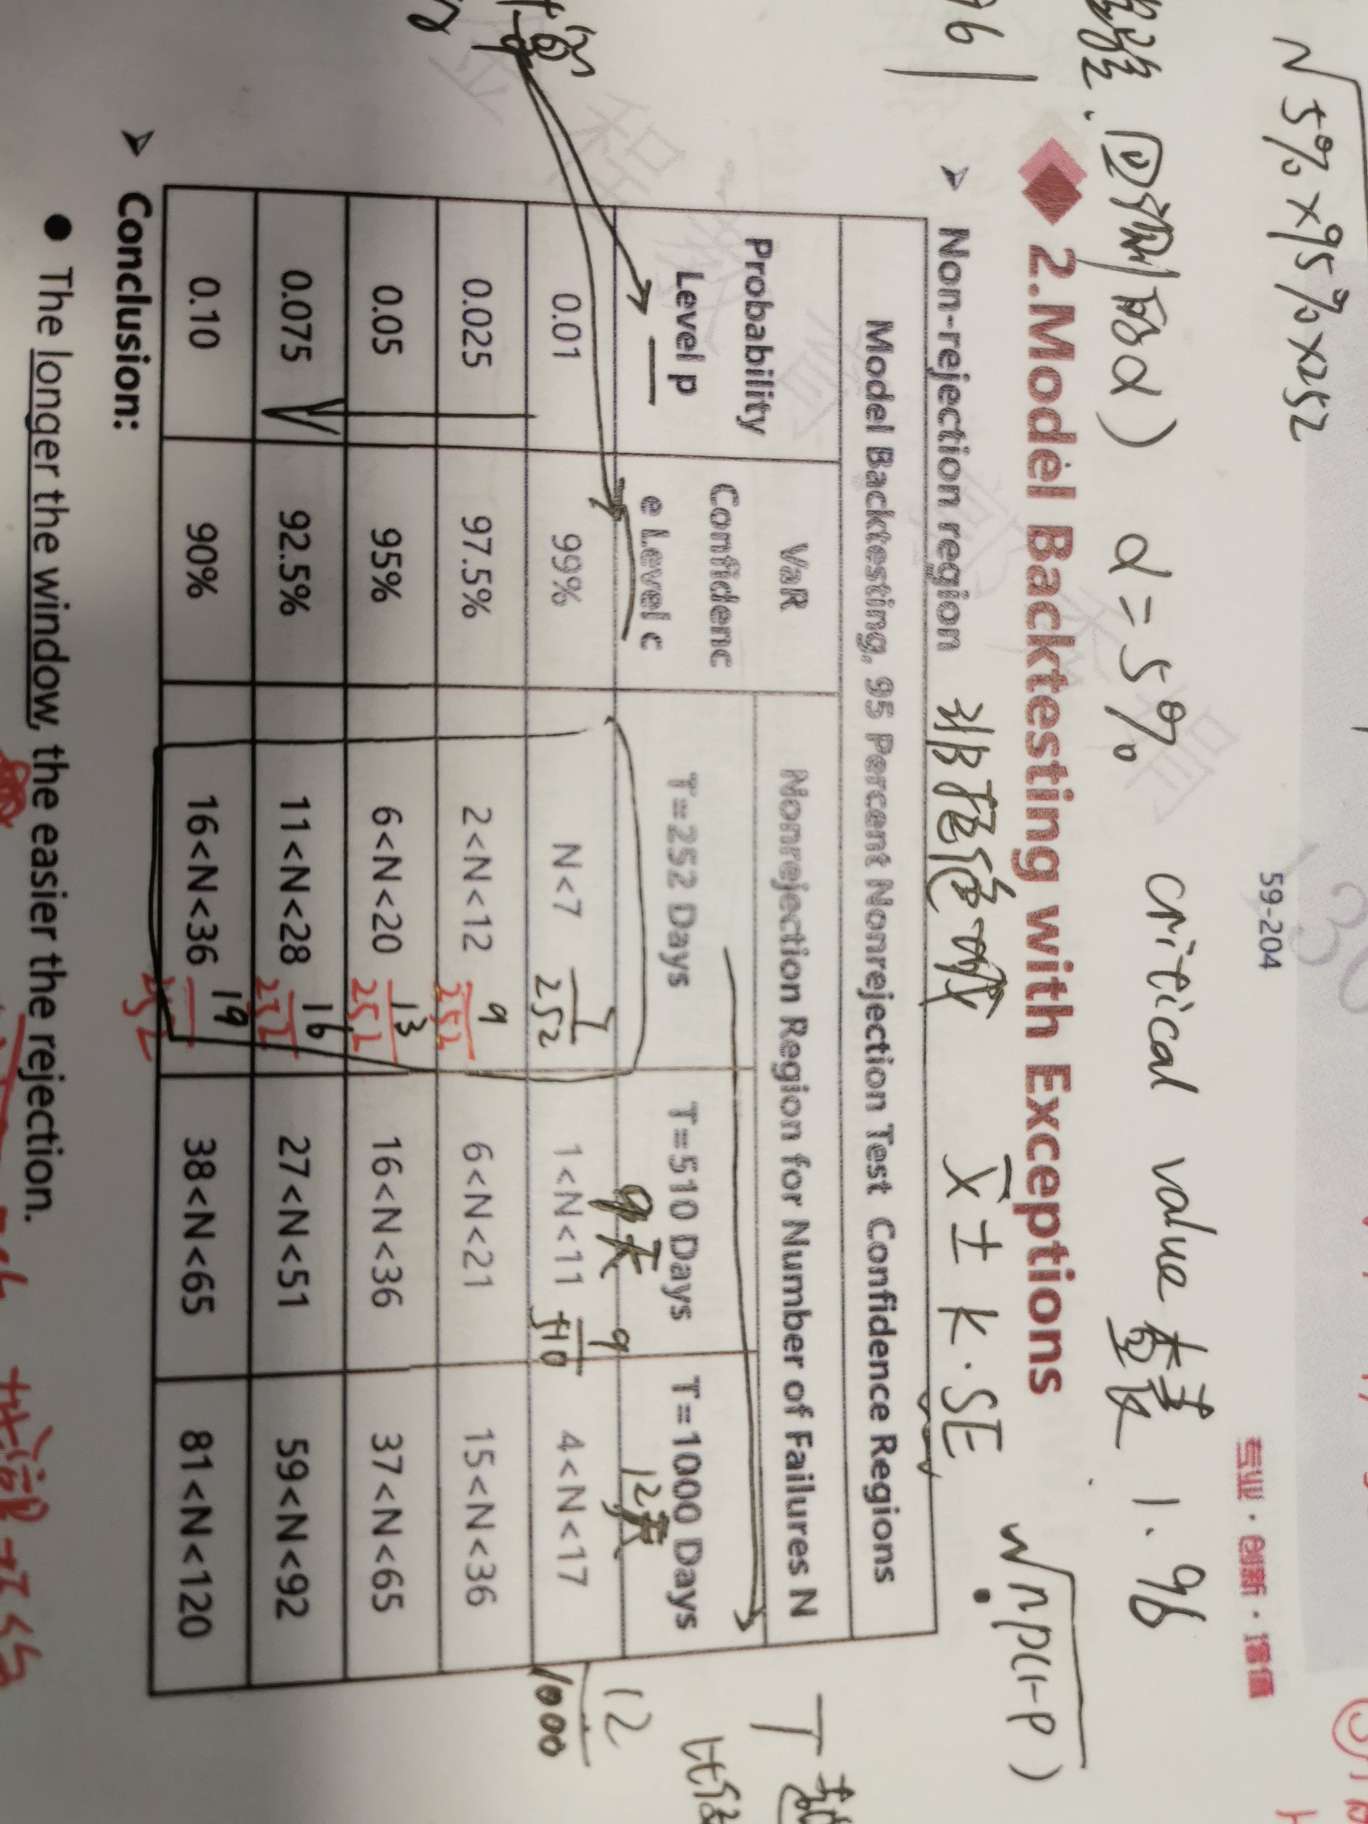 √5%×95%×252
59-204
专业·创新·增值
回测的α) α=5% critical value 查表 1.96
96
2.Model Backtesting with Exceptions
➢ Non-rejection region 非拒绝域 x̄ ± k·SE
√np(1-p) )
Model Backtesting, 95 Percent Nonrejection Test Confidence Regions
Probability Level p
VaR Confidenc e Level c
Nonrejection Region for Number of Failures N
T=252 Days T=510 Days T=1000 Days
9天 12天
0.01 99% N<7 7/252 1<N<11 9/510 4<N<17 12/1000
0.025 97.5% 2<N<12 9/252 6<N<21 15<N<36
0.05 95% 6<N<20 13/252 16<N<36 37<N<65
0.075 92.5% 11<N<28 16/252 27<N<51 59<N<92
0.10 90% 16<N<36 19/252 38<N<65 81<N<120
➢ Conclusion:
● The longer the window, the easier the rejection.